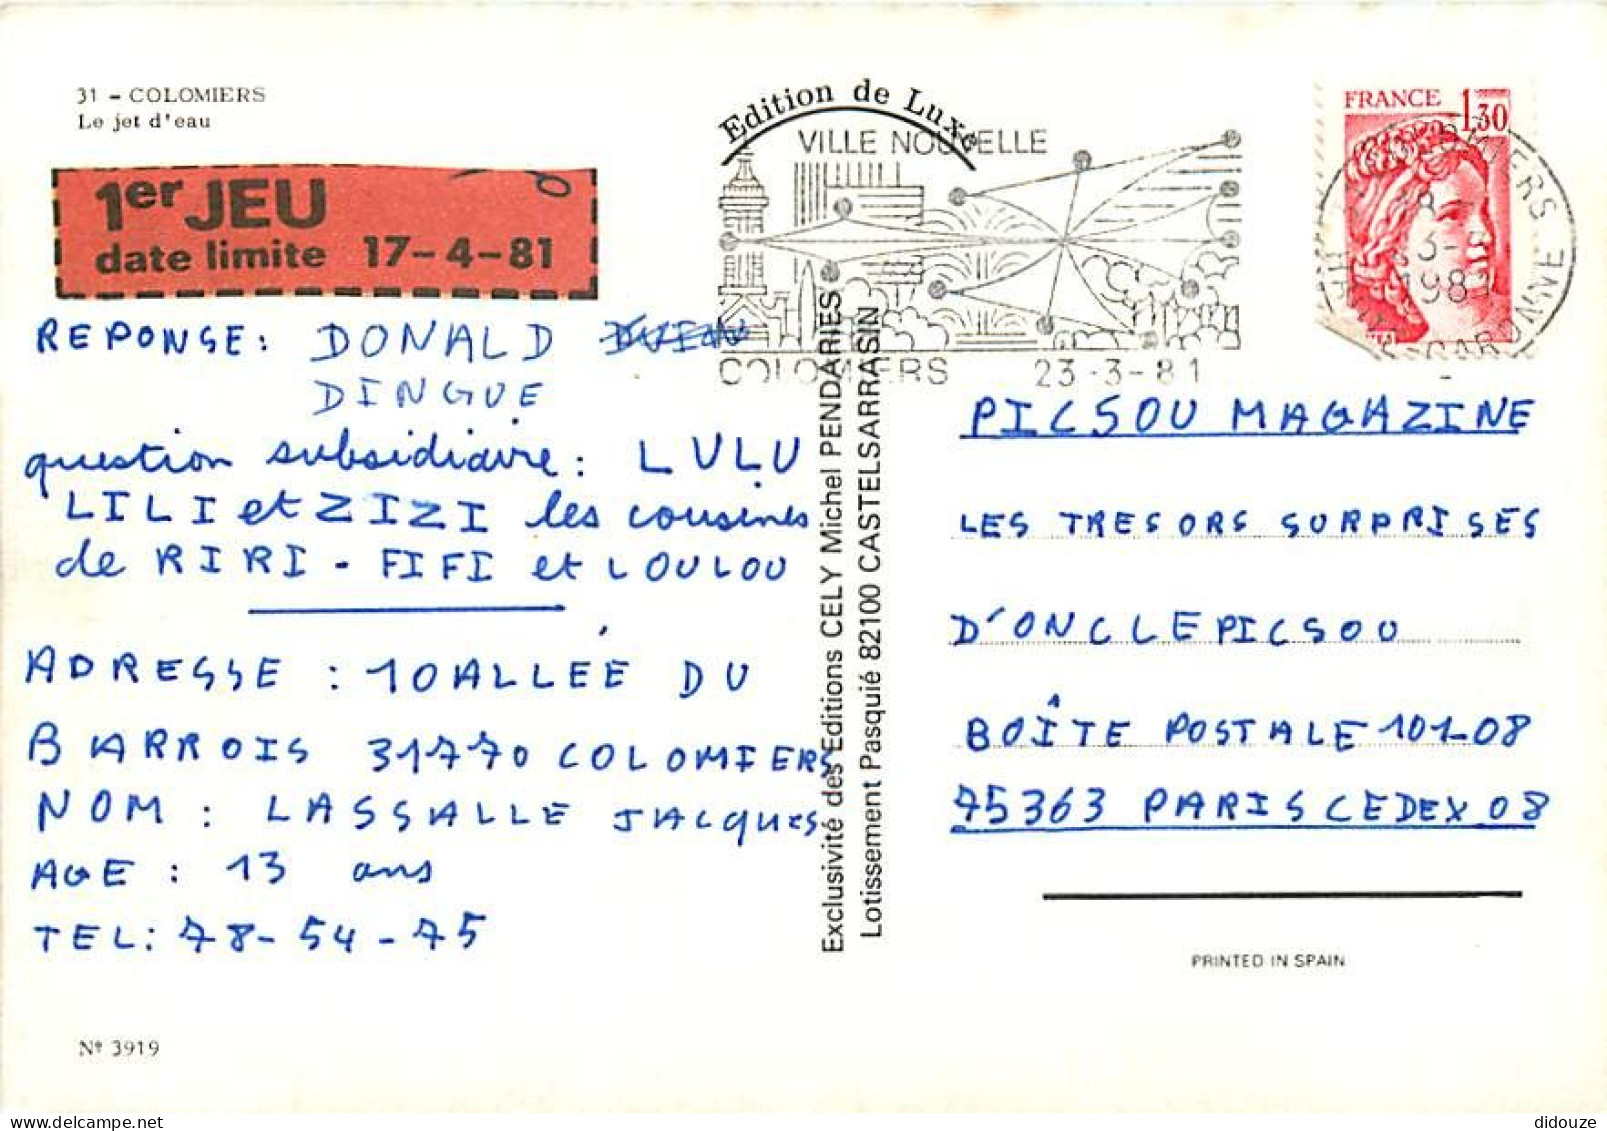 31 - COLOMIERS
Le jet d'eau
1er JEU
date limite 17-4-81
REPONSE: DONALD
DINGUE
question subsidiaire: LULU
LILI et ZIZI les cousines
de RIRI - FIFI et LOULOU
ADRESSE : 10 ALLEE DU
BARROIS 31770 COLOMIERS
NOM : LASSALLE JACQUES
AGE : 13 ans
TEL: 78-54-75
Nº 3919
Edition de Luxe
VILLE NOUVELLE
COLOMIERS 23-3-81
Exclusivité des Editions CELY Michel PENDARIES
Lotissement Pasquié 82100 CASTELSARRASIN
FRANCE 1,30
COLOMIERS
1981
GARONNE
PICSOU MAGAZINE
LES TRESORS SURPRISES
D'ONCLE PICSOU
BOÎTE POSTALE 101-08
75363 PARIS CEDEX 08
PRINTED IN SPAIN
delcampe.net
didouze